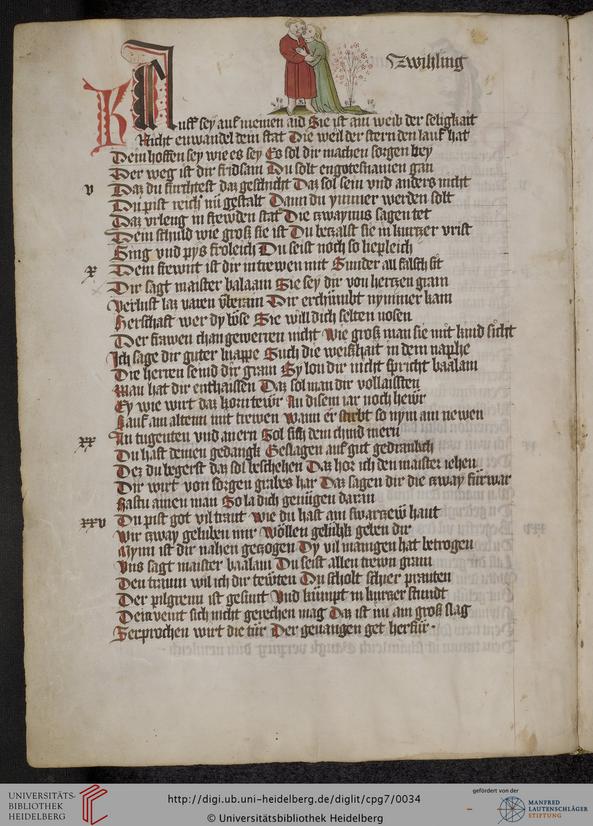 Zwiling
K
Auff sey auf meinen aid Sie ist ain weib der seligkait
Nicht enwandel dein stat Die weil der stern den lauf hat
Dein hoffen sey wie es sey Es sol dir machen sorgen bey
Der weg ist dir fridsam Du solt in gotes namen gan
v Daz du fürchtest daz geschicht Daz sol sein vnd anders nicht
Du pist reich nü gestalt Dann du ymmer werden solt
Daz vrleug in frewden stat Die zwaynns sagen tet
Dein schuld wie groß sie ist Du bezalst sie in kurzer vrist
Sing vnd pys frölich Du seist noch so liepleich
x Dein frewnt ist dir in trewen mit Sunder all falsch sit
Dir sagt maister balaam Sie sey dir von herzen gram
Verlust laz varen Dir nymmer kain
Herschaft wer dy löse Sie will dich selten
Der frawen chan gewerren nicht Wie groß man sie mit kind sicht
Ich sage dir guter knappe Such die weißhait in dem naphe
Die herren seind dir gram Sy lon dir nicht spricht balaam
Man hat dir enthaissen Daz sol man dir vollaissten
Ey wie wirt daz korn tewr In disem iar noch hewr
Kauf am alten mit trewen Wann er stirbt so nym ain newen
xx An tugenten vnd an ern Sol sich dein chind mern
Du hast deinen gedangk Geslagen auf gut
Dez du begerst daz sol beschehen Daz hör ich den maister iehen
Dir wirt von sorgen grabes har Daz sagen dir die zway fürwar
Hastu ainen man So la dich genügen daran
xxv Du pist got vil traut Wie du hast ain swarzew haut
Wir zway geluben mir Wöllen gelükh geben dir
Mynn ist dir nahen gezogen Dy vil manigen hat betrogen
Vns sagt maister balaam Du seist allen trewn gram
Den traum wil ich dir tewten Du scholt schier prauten
Der pilgreim ist gesunt Vnd kümpt in kurzer stundt
Dein veint sich nicht gerechen mag Daz ist im ain groß slag
Zerprochen wirt die tür Der geuangen get herfür
UNIVERSITÄTS-
BIBLIOTHEK
HEIDELBERG
http://digi.ub.uni-heidelberg.de/diglit/cpg7/0034
© Universitätsbibliothek Heidelberg
gefördert von der
MANFRED
LAUTENSCHLÄGER
STIFTUNG